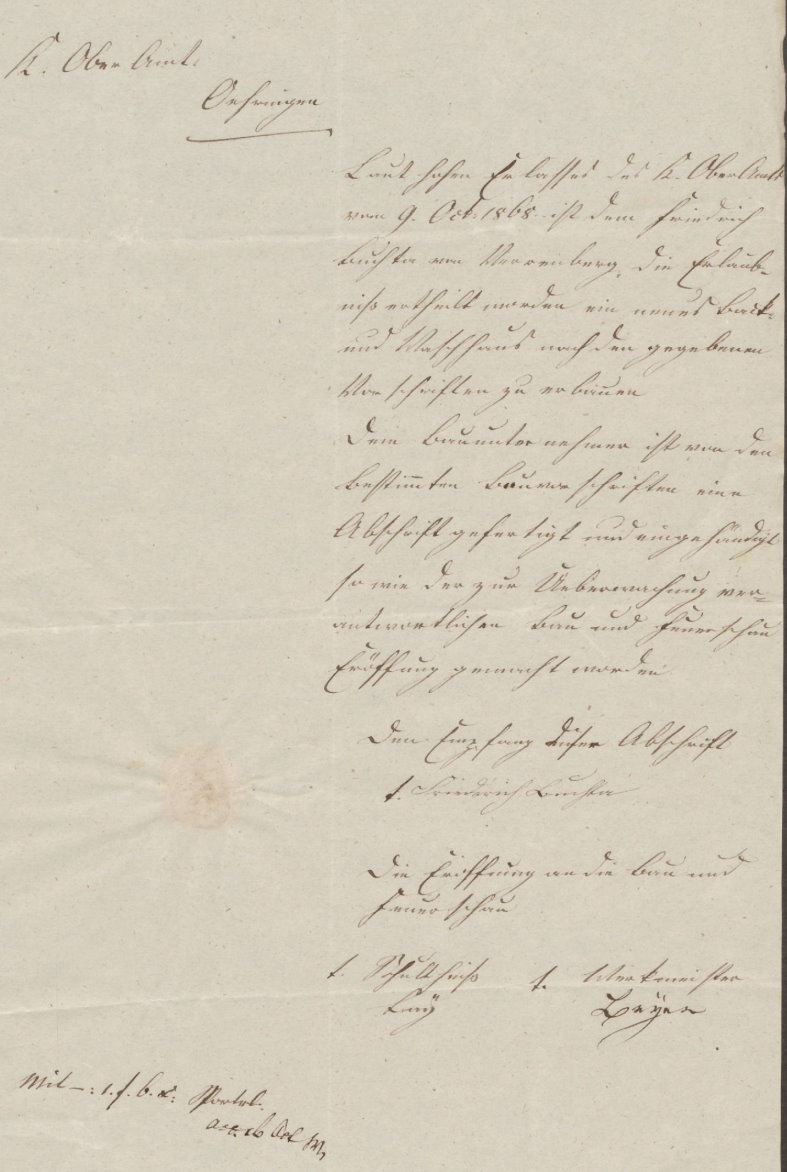 K. Ober Amt.
Oehringen
Laut hohen Erlasses des K. OberAmts
vom 9. Oct. 1868 ist dem Friedrich
Buchta von Verrenberg, die Erlaub-
niß ertheilt worden ein neues Back-
und Waschhaus nach den gegebenen
Vorschriften zu erbauen
Dem Bauunternehmer ist von den
bestimmten Bauvorschriften eine
Abschrift gefertigt und eingehändigt
so wie der zur Ueberwachung ver-
antwortlichen Bau und Feuerschau
Eröffnung gemacht worden
Den Empfang diser Abschrift
t. Friedrich Buchta
Die Eröffnung an die Bau und
Feuerschau
t. Schultheiß t. Werkmeister
Mit -: 1. f. 6. x: Sportel.